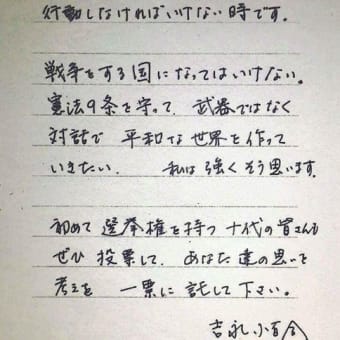 行動しなければいけない時です.
戦争をする国になってはいけない。
憲法9条を守って、武器ではなく
対話で 平和な世界を作って
いきたい. 私は強くそう思います.
初めて選挙権を持つ十代の皆さんも
ぜひ投票して、あなた達の思いと
考えを 一票に託して下さい。
吉永小百合